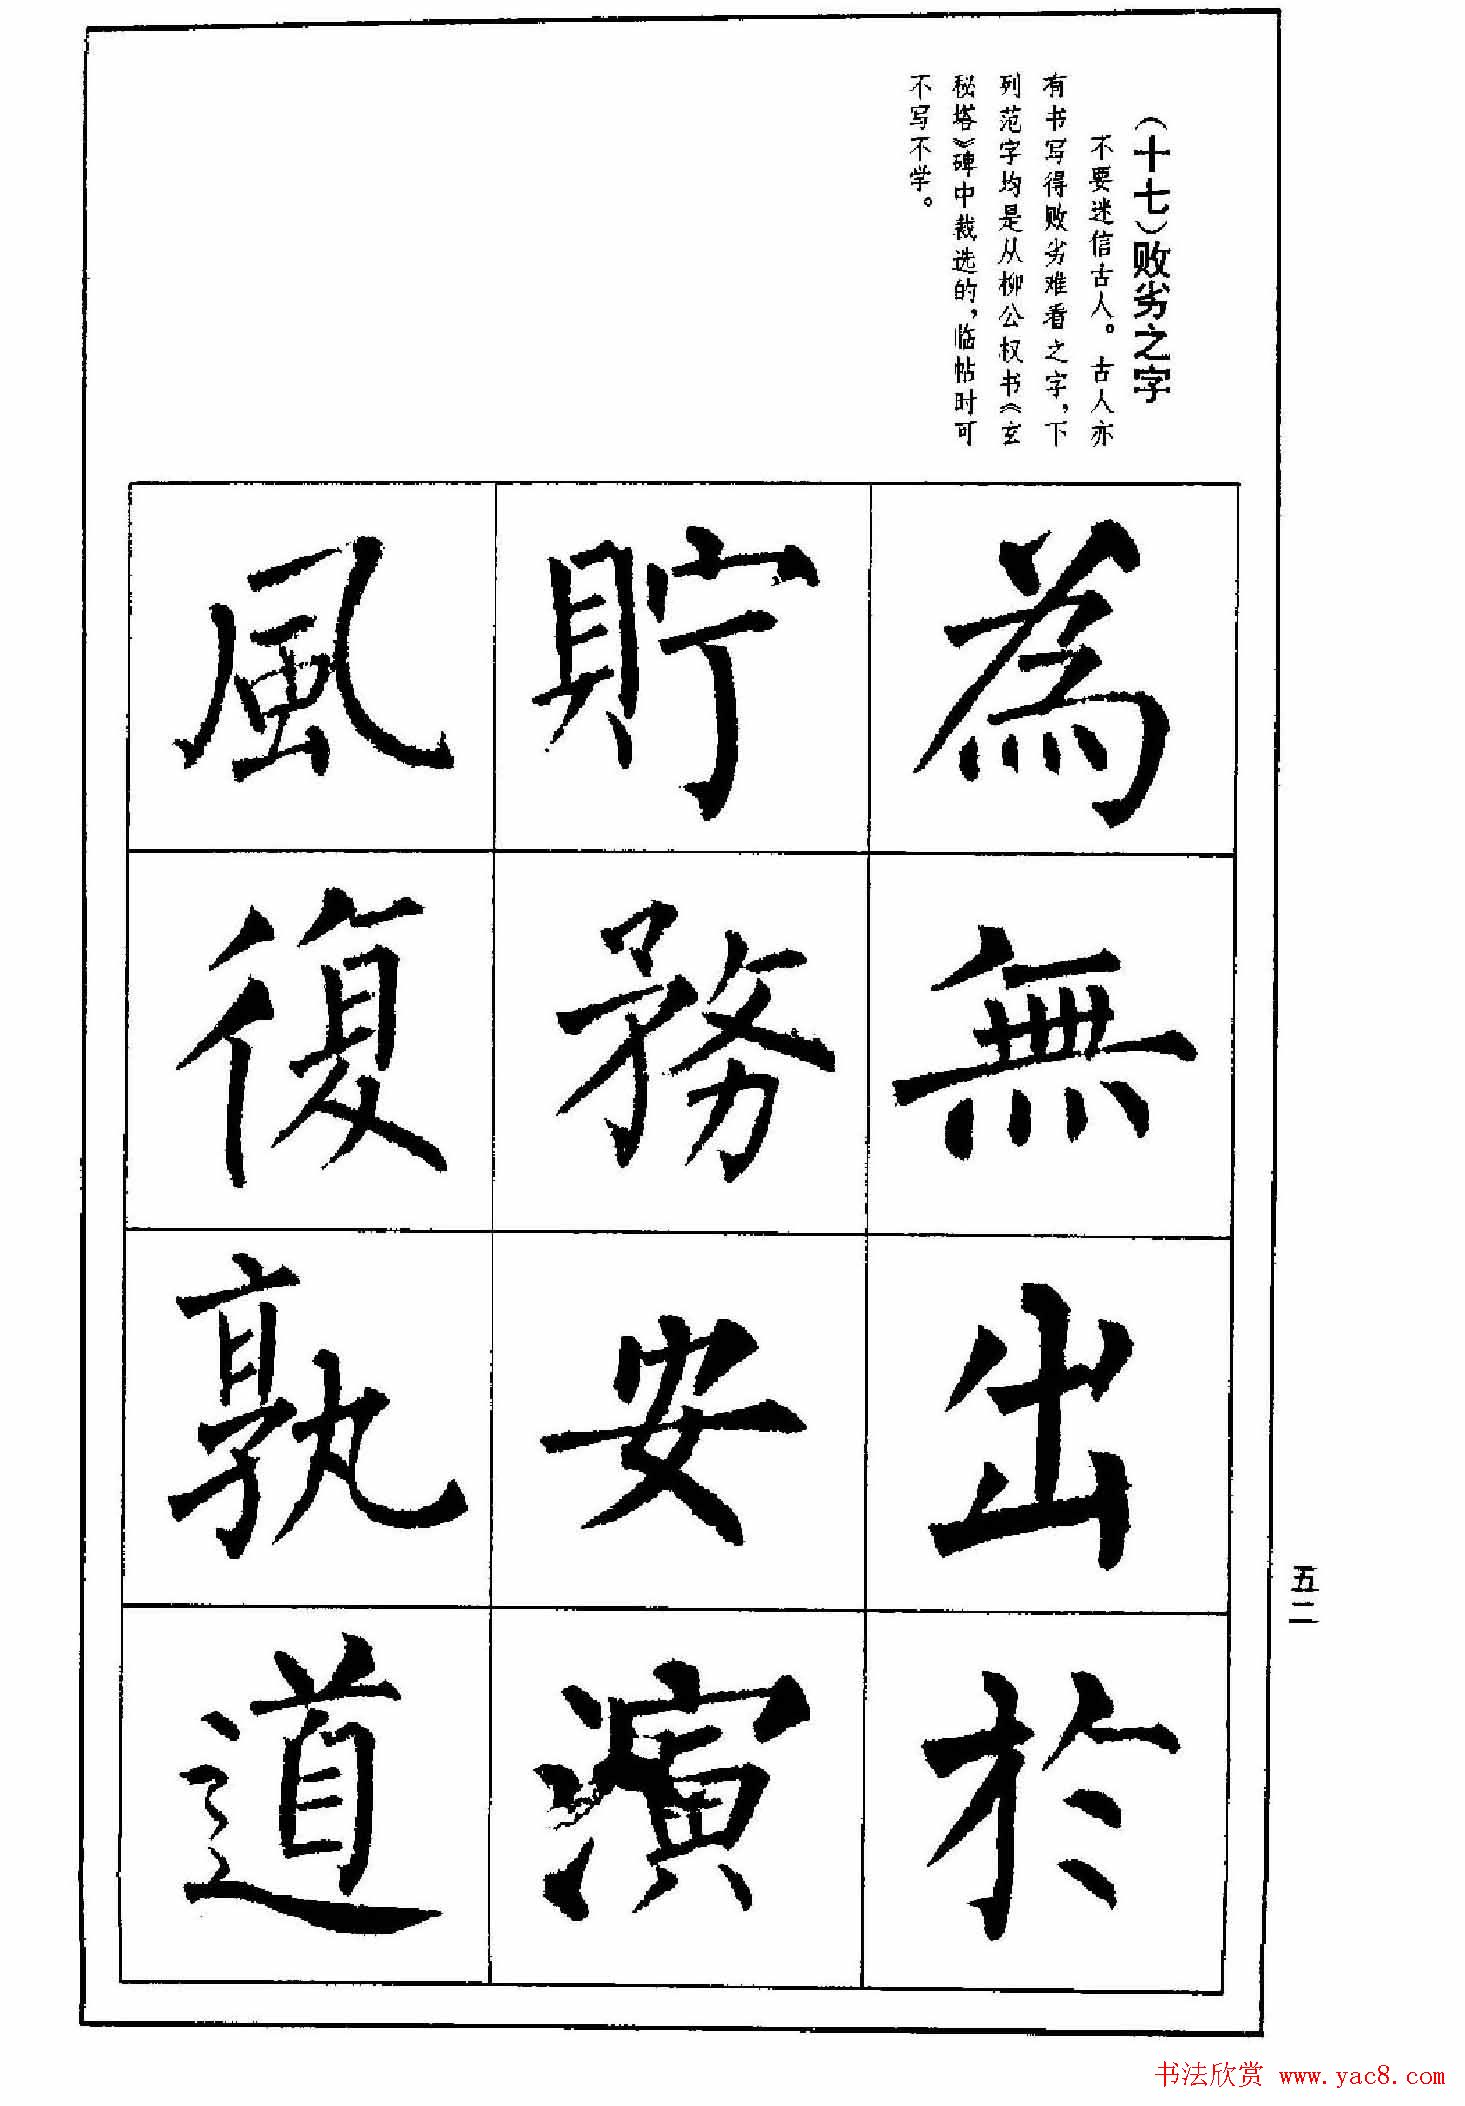 （十七）败劣之字
不要迷信古人。古人亦
有书写得败劣难看之字，下
列范字均是从柳公权书《玄
秘塔》碑中裁选的，临帖时可
不写不学。
為無出於
貯務安演
風復孰道
五二
书法欣赏 www.yac8.com